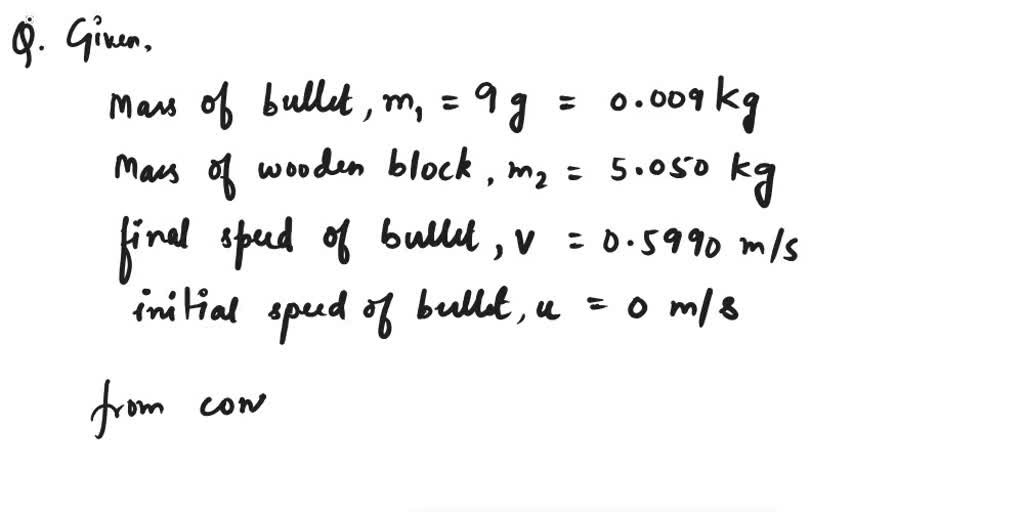 Q. Given,
Mass of bullet, m₁ = 9 g = 0.009 kg
Mass of wooden block, m₂ = 5.050 kg
final speed of bullet, v = 0.5990 m/s
initial speed of bullet, u = 0 m/s
from con